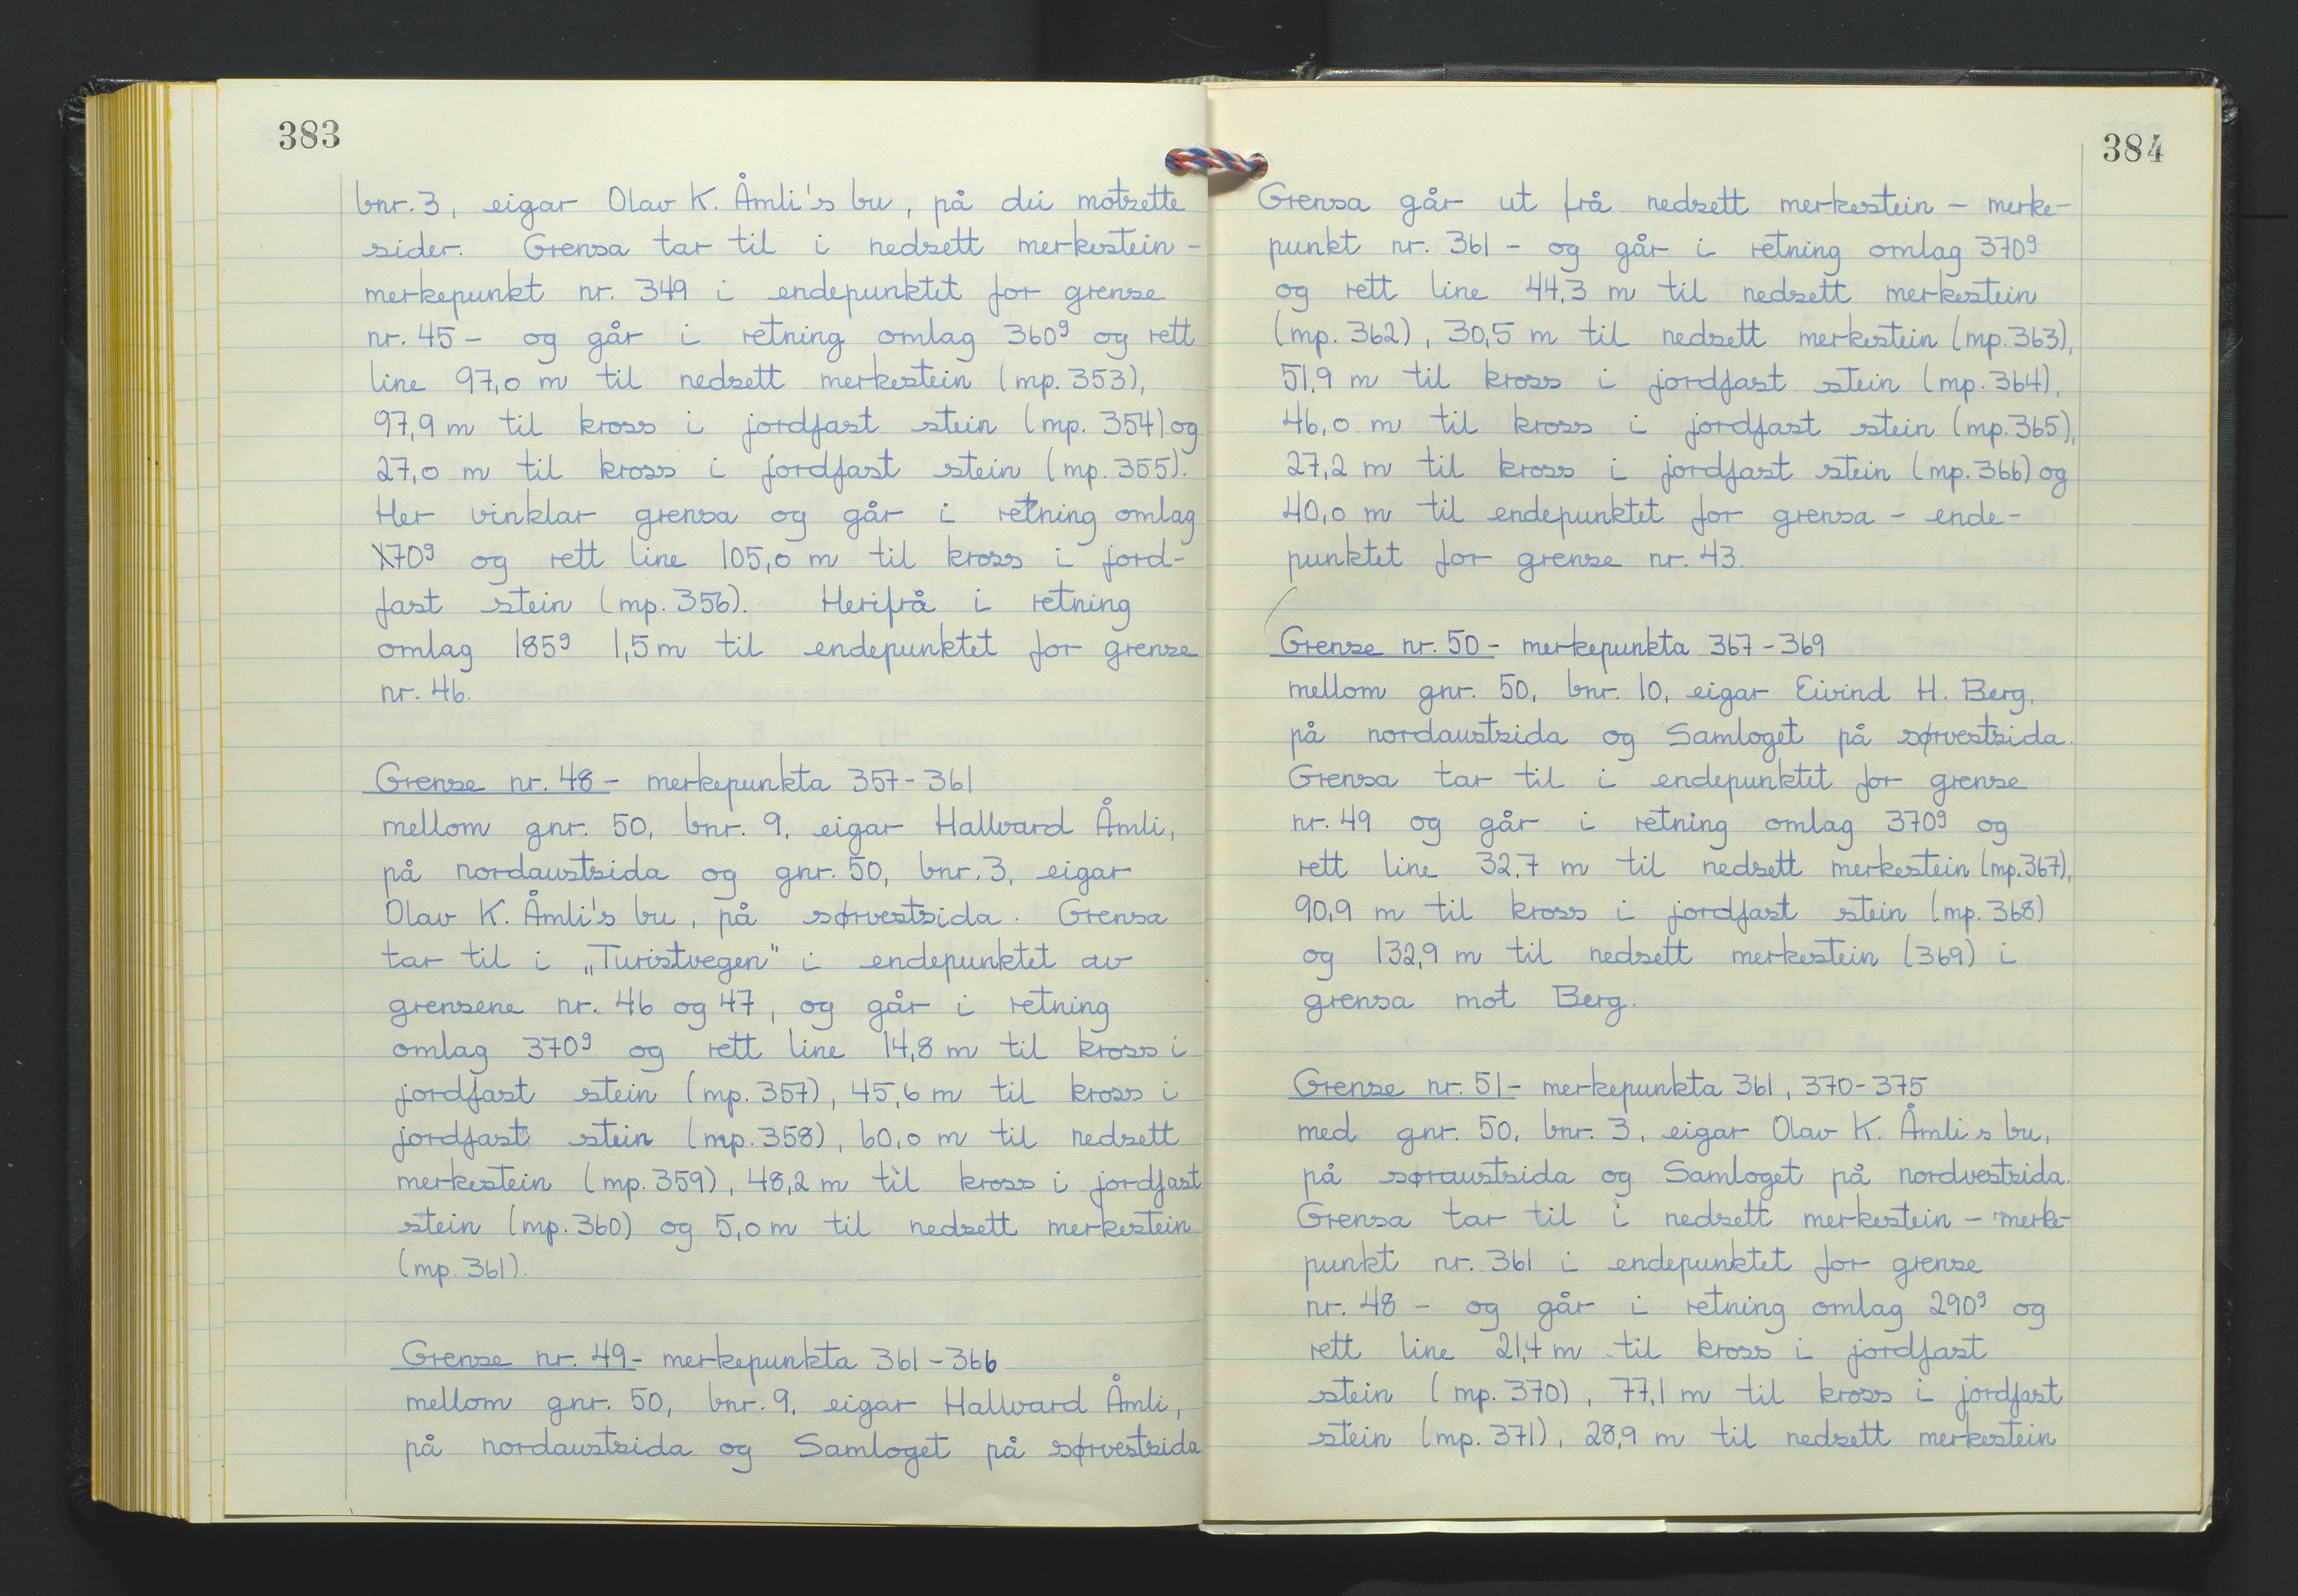 383
bnr. 3, eigar Olav K. Åmli's bu, på dei motsette
sider. Grensa tar til i nedsett merkestein -
merkepunkt nr. 349 i endepunktet for grense
nr. 45 - og går i retning omlag 360g og rett
line 97,0 m til nedsett merkestein (mp. 353),
97,9 m til kross i jordfast stein (mp. 354) og
27,0 m til kross i jordfast stein (mp. 355).
Her vinklar grensa og går i retning omlag
170g og rett line 105,0 m til kross i jord-
fast stein (mp. 356). Herifrå i retning
omlag 185g 1,5 m til endepunktet for grense
nr. 46.
Grense nr. 48 - merkepunkta 357-361
mellom gnr. 50, bnr. 9, eigar Hallvard Åmli,
på nordaustsida og gnr. 50, bnr. 3, eigar
Olav K. Åmli's bu, på sørvestsida. Grensa
tar til i „Turistvegen" i endepunktet av
grensene nr. 46 og 47, og går i retning
omlag 370g og rett line 14,8 m til kross i
jordfast stein (mp. 357), 45,6 m til kross i
jordfast stein (mp. 358), 60,0 m til nedsett
merkestein (mp. 359), 48,2 m til kross i jordfast
stein (mp. 360) og 5,0 m til nedsett merkestein
(mp. 361).
Grense nr. 49 - merkepunkta 361-366
mellom gnr. 50, bnr. 9, eigar Hallvard Åmli,
på nordaustsida og Samloget på sørvestsida
384
Grensa går ut frå nedsett merkestein - merke-
punkt nr. 361 - og går i retning omlag 370g
og rett line 44,3 m til nedsett merkestein
(mp. 362), 30,5 m til nedsett merkestein (mp. 363),
51,9 m til kross i jordfast stein (mp. 364),
46,0 m til kross i jordfast stein (mp. 365),
27,2 m til kross i jordfast stein (mp. 366) og
40,0 m til endepunktet for grensa - ende-
punktet for grense nr. 43.
Grense nr. 50 - merkepunkta 367-369
mellom gnr. 50, bnr. 10, eigar Eivind H. Berg,
på nordaustsida og Samloget på sørvestsida.
Grensa tar til i endepunktet for grense
nr. 49 og går i retning omlag 370g og
rett line 32,7 m til nedsett merkestein (mp. 367),
90,9 m til kross i jordfast stein (mp. 368)
og 132,9 m til nedsett merkestein (369) i
grensa mot Berg.
Grense nr. 51 - merkepunkta 361, 370-375
med gnr. 50, bnr. 3, eigar Olav K. Åmli s bu,
på søraustsida og Samloget på nordvestsida.
Grensa tar til i nedsett merkestein - merke-
punkt nr. 361 i endepunktet for grense
nr. 48 - og går i retning omlag 290g og
rett line 21,4 m til kross i jordfast
stein (mp. 370), 77,1 m til kross i jordfast
stein (mp. 371), 28,9 m til nedsett merkestein